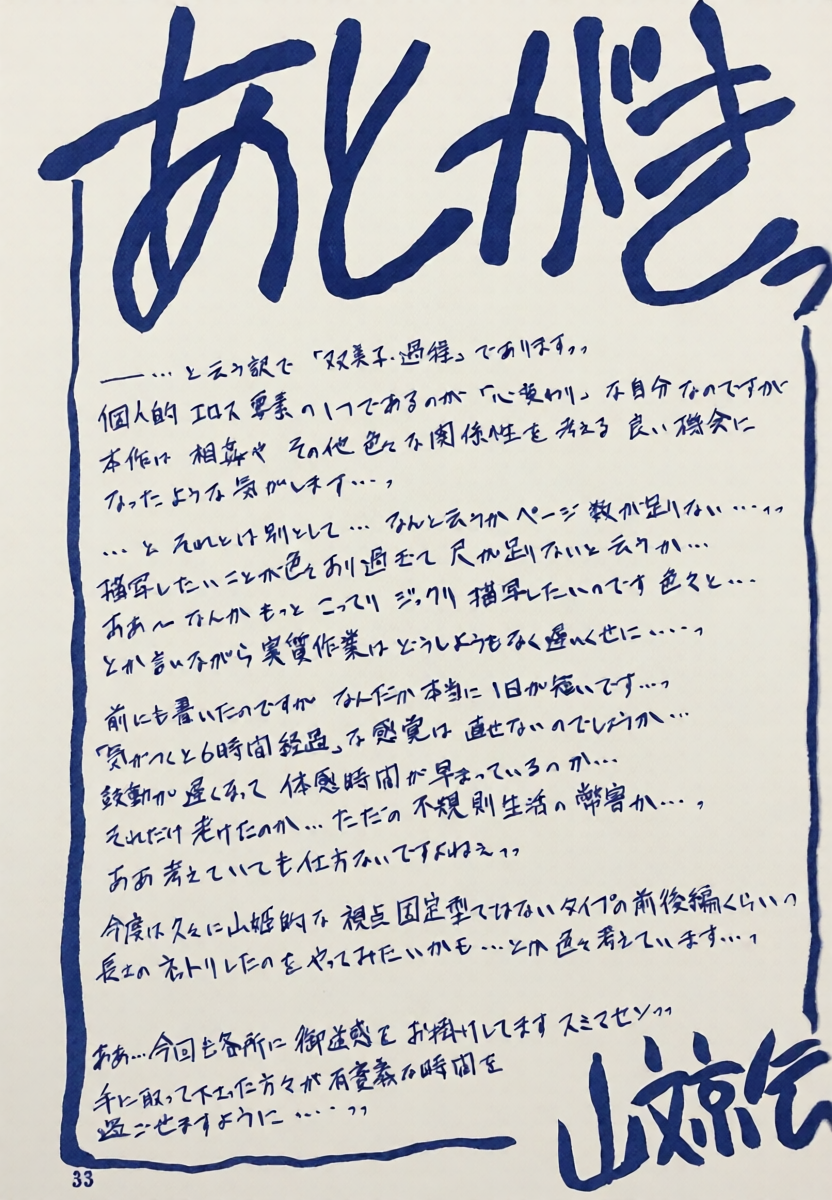 あとがきっ
――…と云う訳で「双美子・過程」であります,,
個人的エロス要素の1つであるのが「心変わり」な自分なのですが
本作は相姦やその他色々な関係性を考える良い機会に
なったような気がします…,
…とそれとは別として…なんと云うかページ数が足りない…,,
描写したいことが色々あり過ぎて尺が足りないと云うか…
ああ〜なんかもっとこってりジックリ描写したいのです色々と…
とか言いながら実質作業はどうしようもなく遅いくせに‥‥,
前にも書いたのですがなんだか本当に1日が短いです…,
「気がつくと6時間経過」な感覚は直せないのでしょうか…
鼓動が遅くなって体感時間が早まっているのか…
それだけ老けたのか…ただの不規則生活の弊害か…,
ああ考えていても仕方ないですよねぇ,,
今度は久々に山姫的な視点固定型ではないタイプの前後編くらいの
長さのネットリしたのをやってみたいかも…とか色々考えています…,
ああ…今回も各所に御迷惑をお掛けしてますスミマセン,,
手に取って下さった方々が有意義な時間を
過ごせますように‥‥,,
山文京伝
33